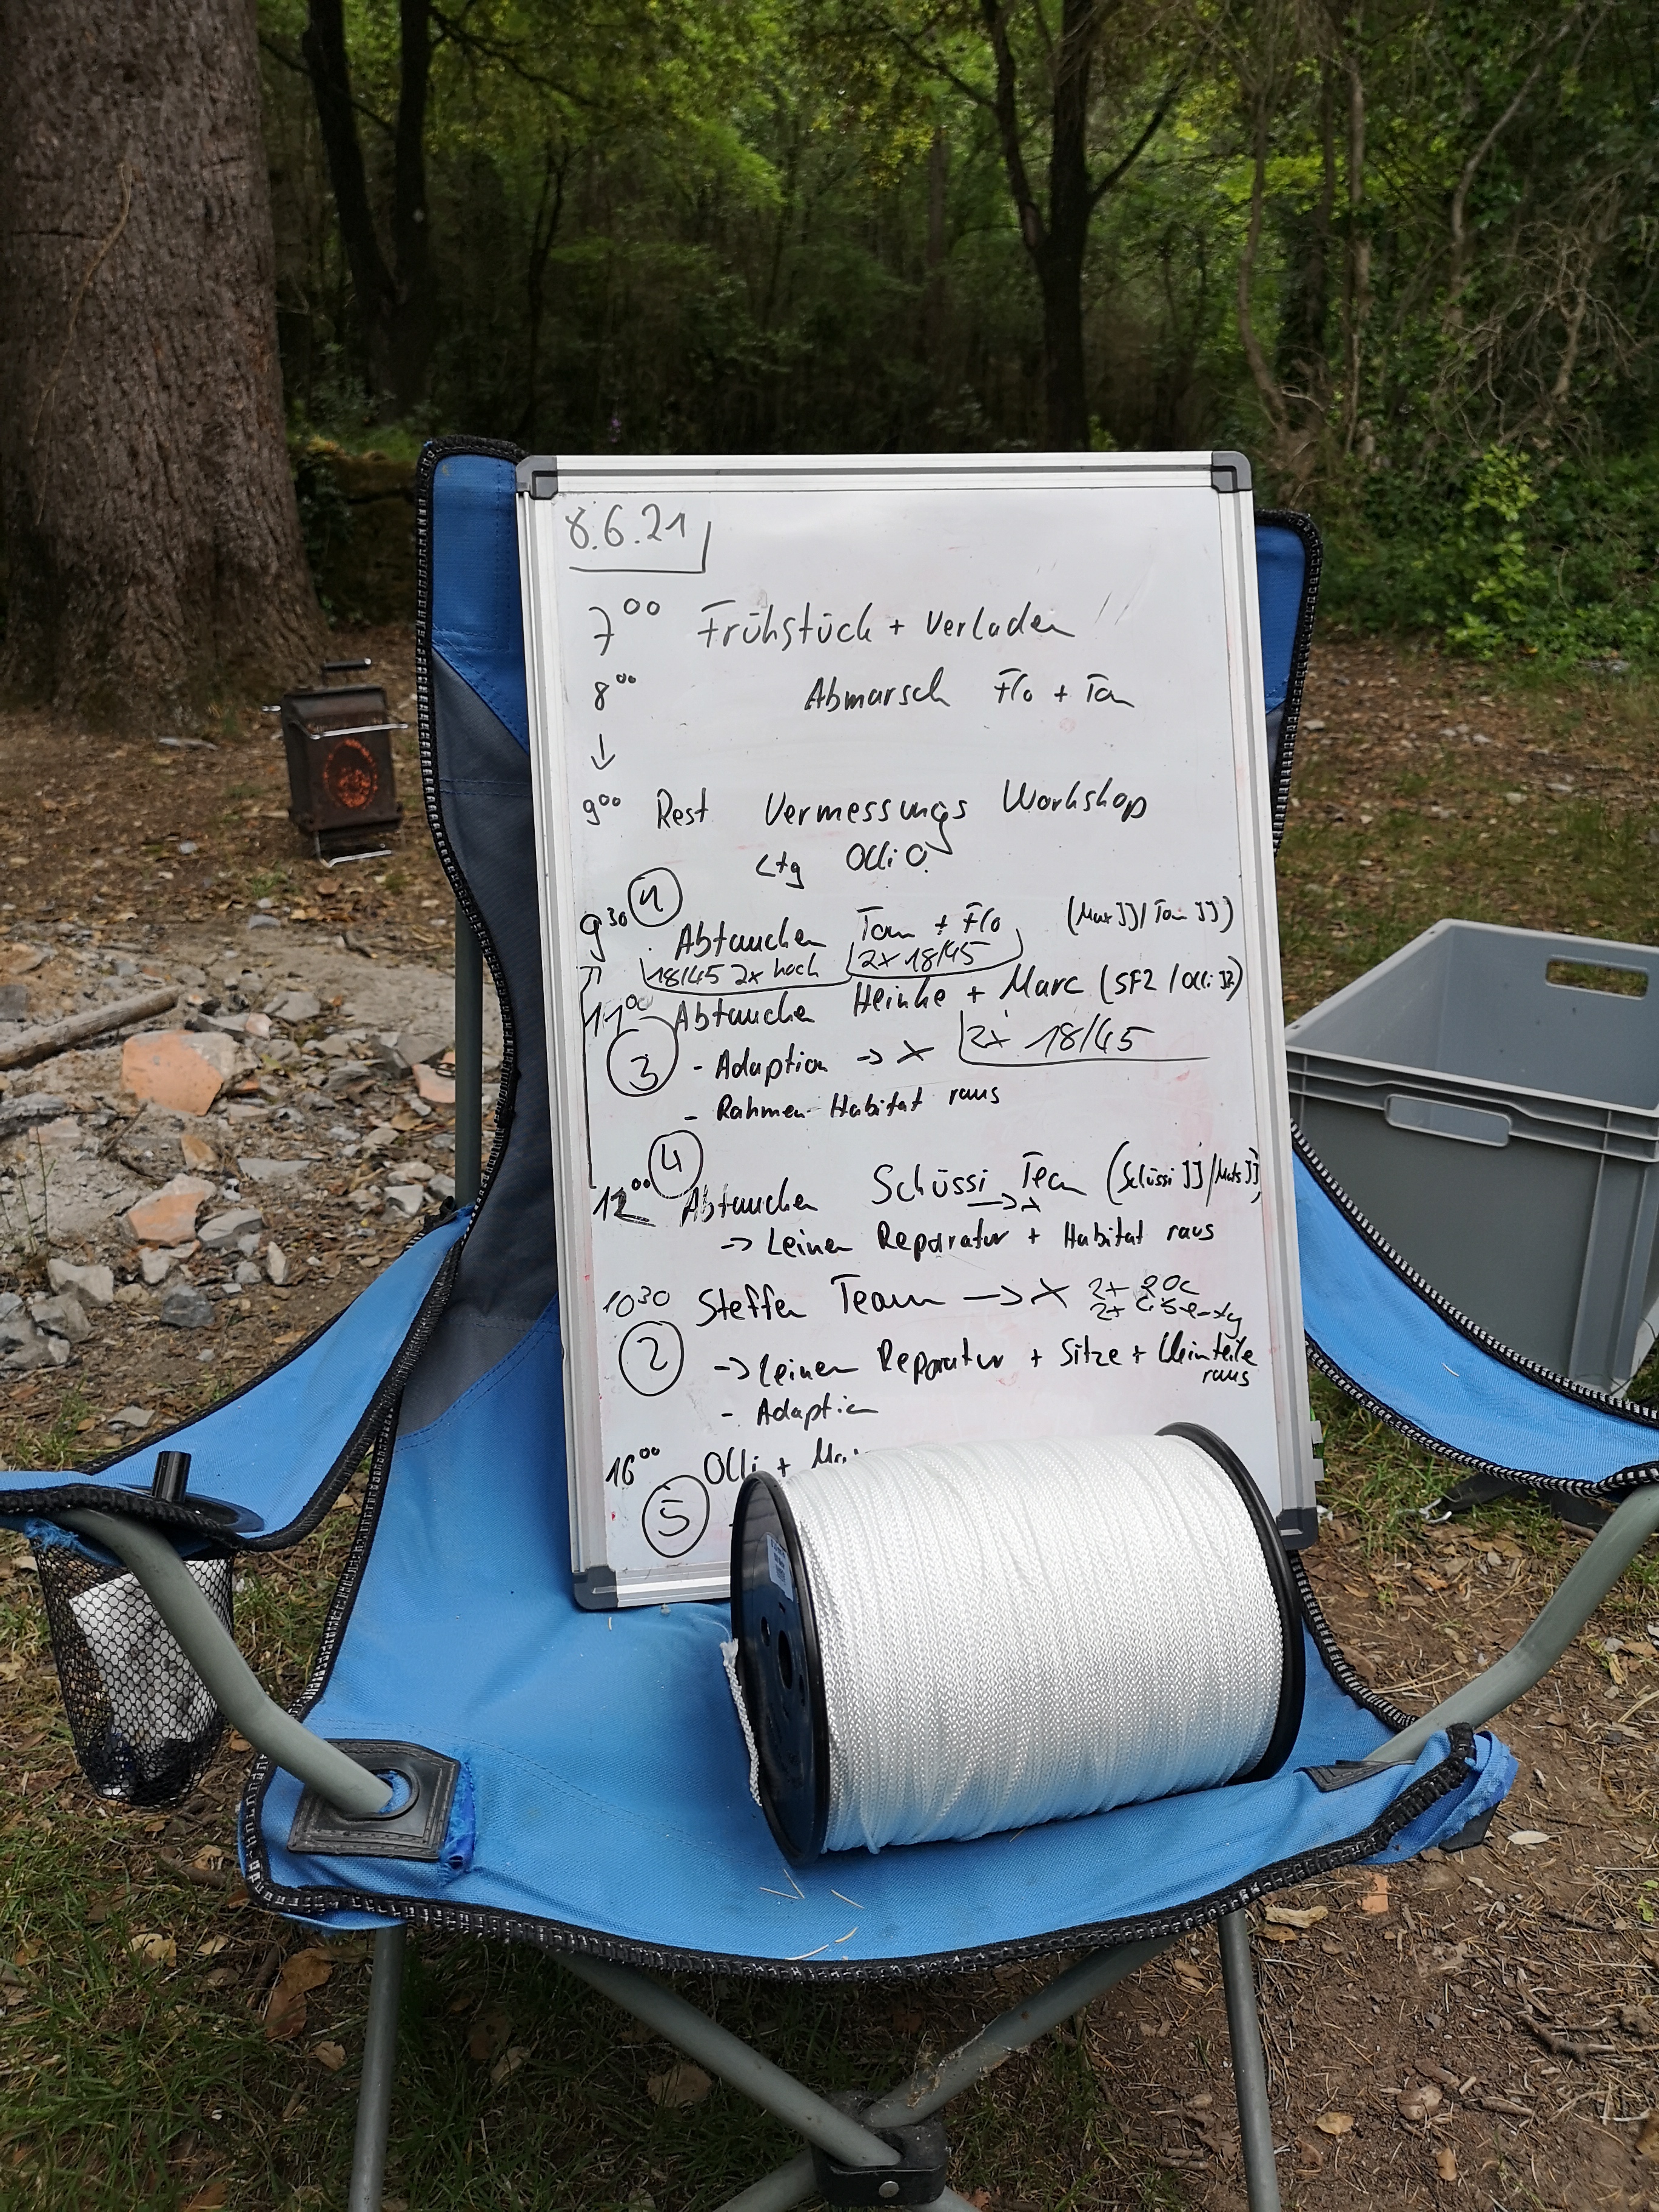 8.6.21
7⁰⁰ Frühstück + Verladen
8⁰⁰ Abmarsch Flo + Tom
↓
9⁰⁰ Rest Vermessungs Workshop
Ltg Olli O.
9³⁰ ① Abtauchen Tom + Flo (Max JJ/Tom JJ)
18/45 2x hoch 2x 18/45
11⁰⁰ Abtauchen Heinke + Marc (SF2 / Olli JJ)
③ - Adaption -> X 2x 18/45
- Rahmen Habitat raus
④
12⁰⁰ Abtauchen Schüssi Team (Schüssi JJ/Mats JJ)
-> X
-> Leinen Reparatur + Habitat raus
10³⁰ Steffen Team -> X 2x
2x
② -> Leinen Reparatur + Sitze + Kleinteile
raus
- Adaption
16⁰⁰ Olli +
⑤